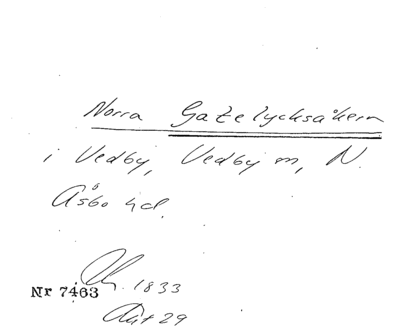 Norra Gatelycksåkern
i Vedby, Vedby sn, N.
Åsbo hd.
Lm. 1833
Nr 7463
Akt 29